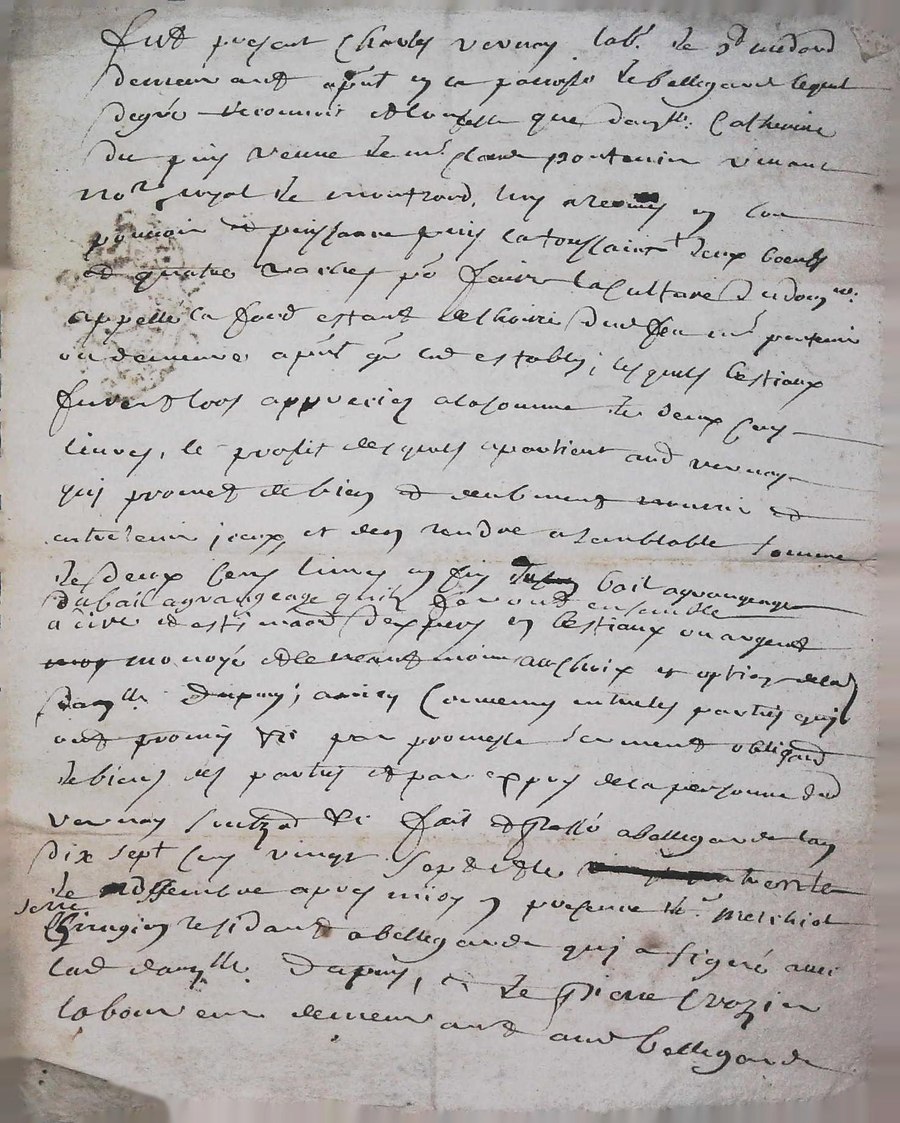 fut present Charles vernay lab.r de st medard
demeurant apnt en la paroisse de bellegarde lequel
degré reconnoit et confesse que damlle. Catherine
du puy veuve de mr. Claude pontenier vivant
nore royal de montrond, luy a remis en son
pouvoir et puissance puis la toussaint deux boeufs
et quatre vaches po faire la culture du domne.
appellé la fond estant de lhoirie dud feu mr pontenier
ou demeure apnt qu led estably; lesquels bestiaux
furent lors appreciez a la somme de deux cens
livres, le profit desquels apartient aud vernay
qui promet de bien et deubment nourrir et
entretenir iceux, et den rendre a semblable somme
de deux cens livres en fin bail agrangeage
du bail agrangeage quils feront ensemble
a dire et estimaon dexpers en bestiaux ou argent
monoyé au choix et option de lad
damlle Dupuy; ainsy convenu entre les parties quy
ont promis &c par promesse serment obligeant
le biens des parties et par exprès de la personne dud
vernay &c fait et passé a bellegarde lan
dix sept cens vingt sept et le trente
de dessembre apres midy en presence de mr. melchiol
serre
Chirugien residant a bellegarde qui a signé avec
lad damlle Dupuy, et de Pierre Crozier
laboureur demeurant aud bellegarde